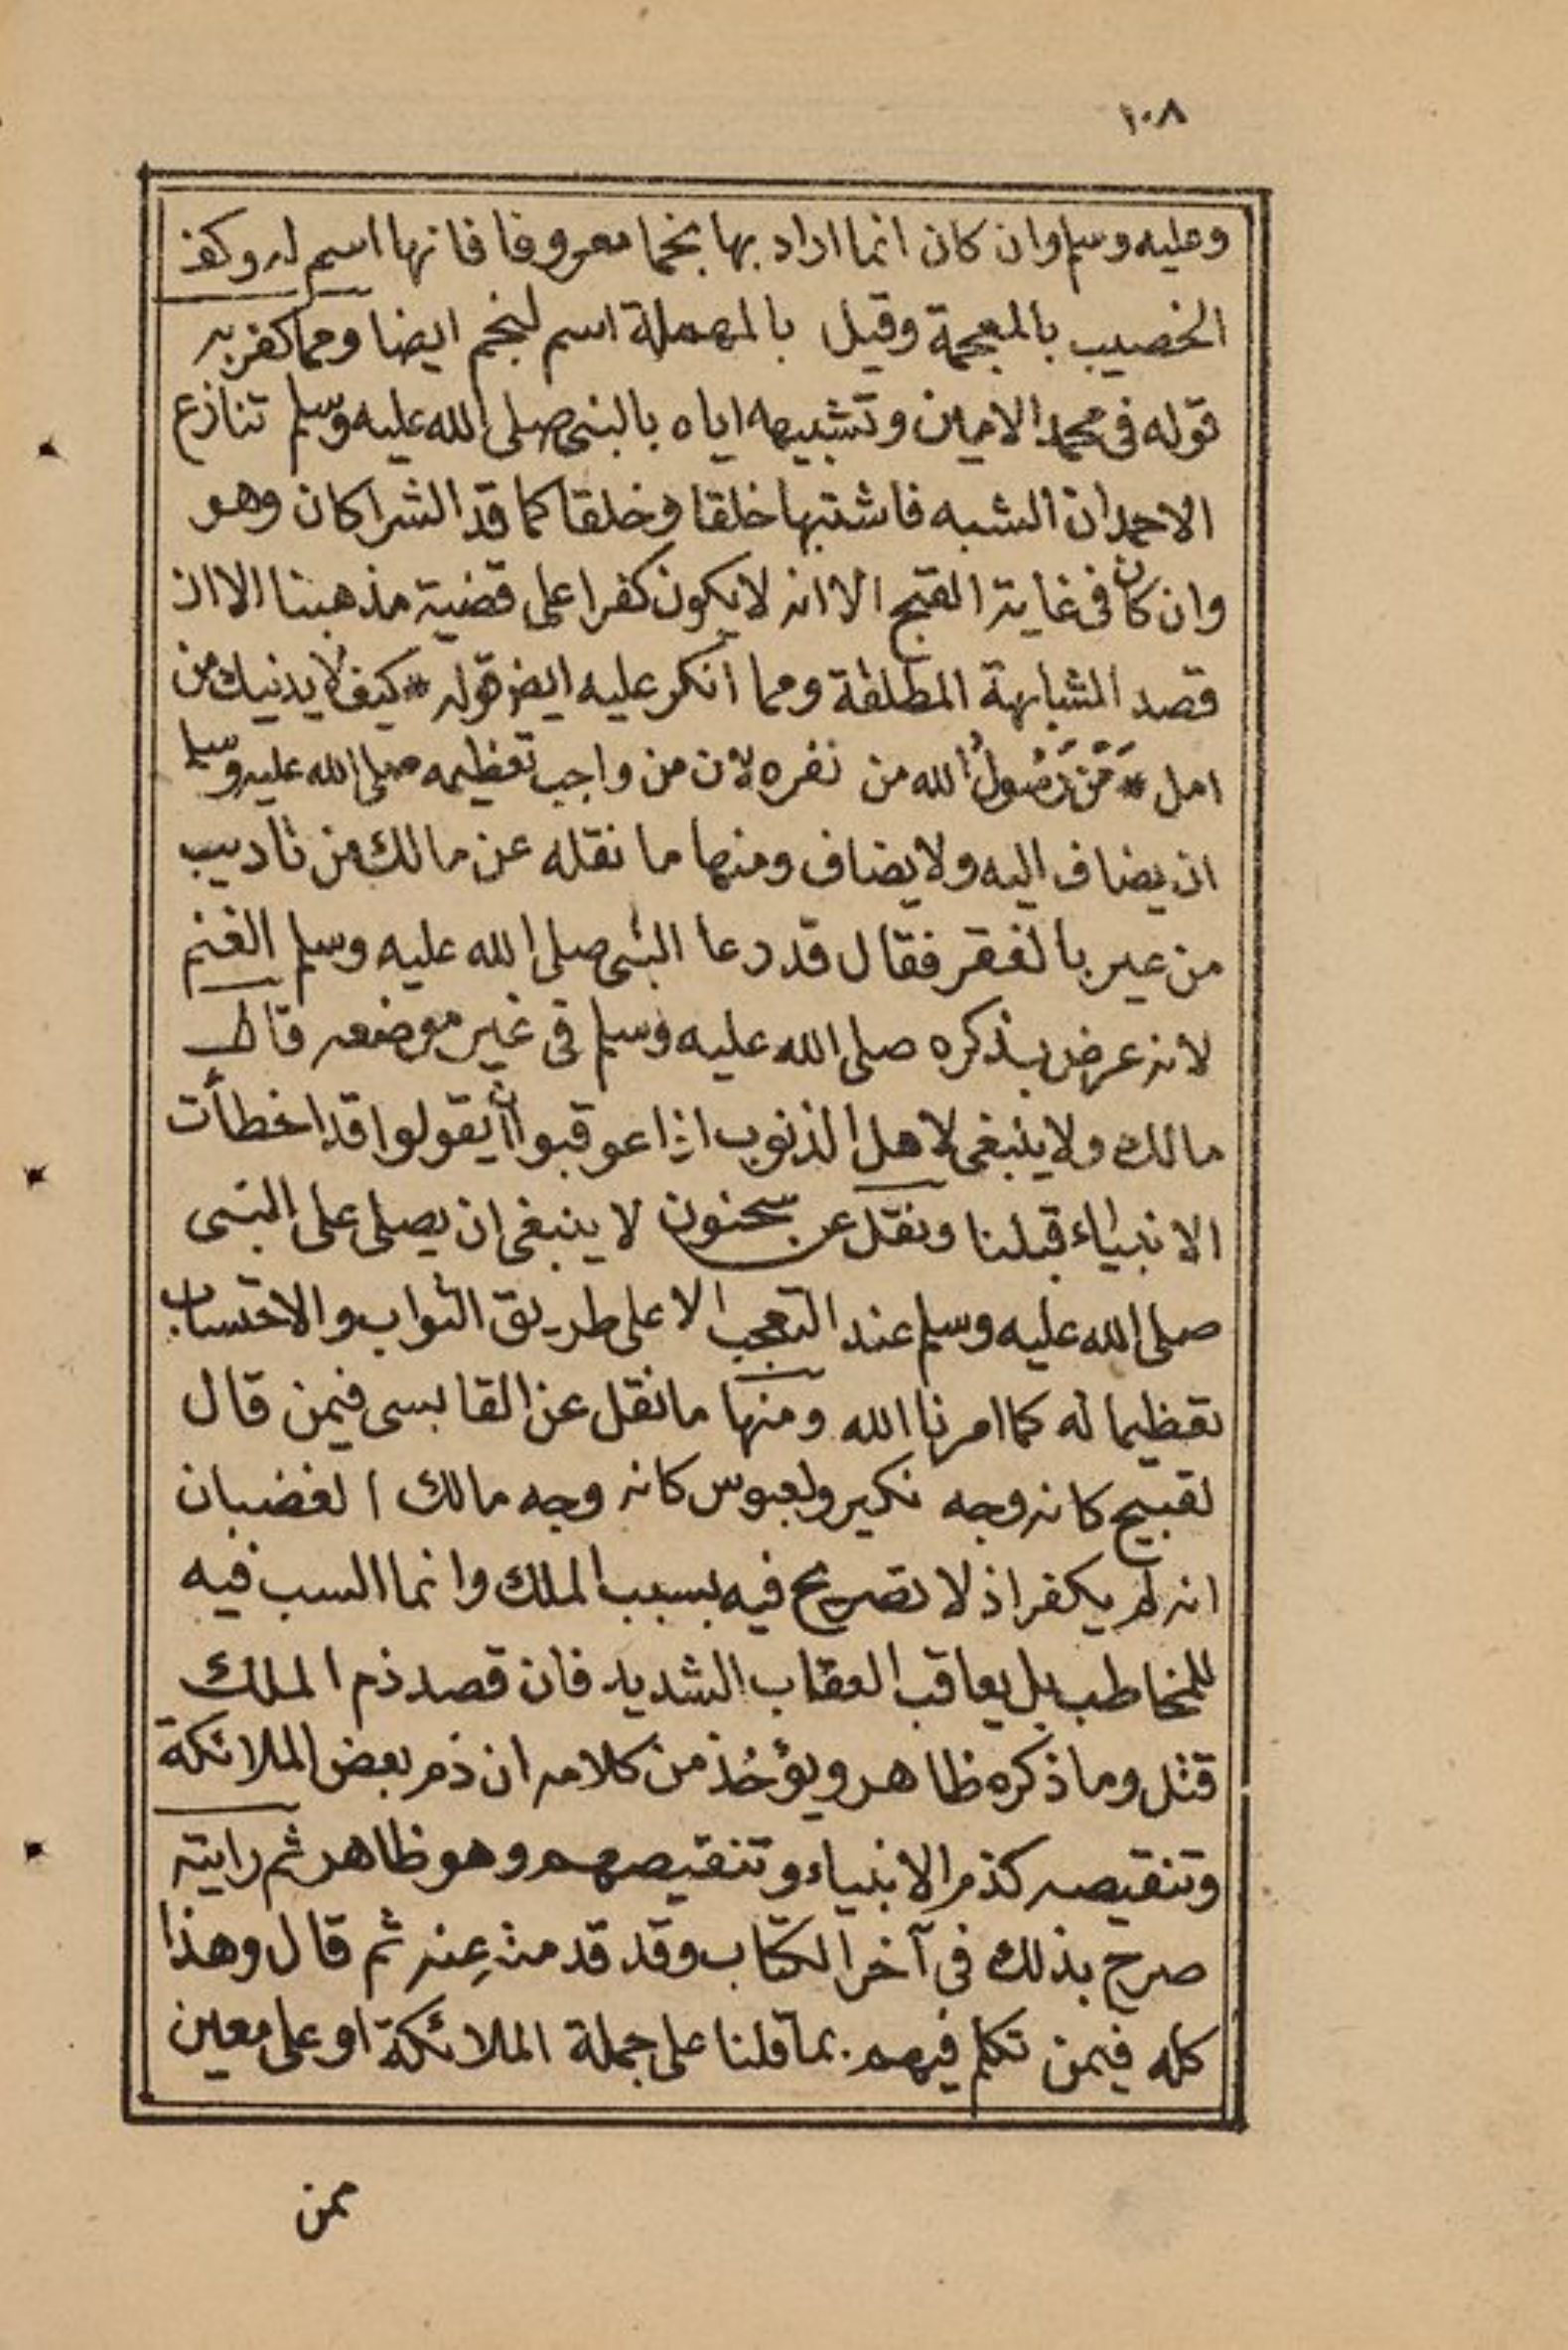 ١٠٨
وعليه وسلم وان كان انما اراد بها نجما معروفا فانها اسم له وكف
الخصيب بالمعجمة وقيل بالمهملة اسم لنجم ايضا ومما كفر به
قوله فى محمد الامين وتشبيهه اياه بالنبى صلى الله عليه وسلم تنازع
الاحمدان الشبه فاشتبها خلقا وخلقا كما قد الشراكان وهو
وان كان فى غاية القبح الا انه لا يكون كفرا على قضية مذهبنا الا ان
قصد المشابهة المطلقة ومما انكر عليه ايض قوله * كيف لا يدنيك من
امل * مَنْ رَسُولُ الله من نفره لان من واجب تعظيمه صلى الله عليه وسلم
ان يضاف اليه ولا يضاف ومنها ما نقله عن مالك من تاديب
من عير بالفقر فقال قد رعا النبى صلى الله عليه وسلم الغنم
لانه عرض بذكره صلى الله عليه وسلم فى غير موضعه قال
مالك ولا ينبغى لاهل الذنوب اذا عوقبوا ان يقولوا قد اخطأت
الانبياء قبلنا ونقل عن سحنون لا ينبغى ان يصلى على النبى
صلى الله عليه وسلم عند التعجب الا على طريق الثواب والاحتساب
تعظيما له كما امرنا الله ومنها ما نقل عن القابسى فيمن قال
لقبيح كانه وجه نكير ولعبوس كانه وجه مالك الغضبان
انه لم يكفر اذ لا تصريح فيه بسبب الملك وانما السب فيه
للمخاطب بل يعاقب العقاب الشديد فان قصد ذم الملك
قتل وما ذكره ظاهر ويؤخذ من كلامه ان ذم بعض الملائكة
وتنقيصه كذم الانبياء وتنقيصهم وهو ظاهر ثم رايته
صرح بذلك فى آخر الكتاب وقد قدمته عنه ثم قال وهذا
كله فيمن تكلم فيهم بما قلنا على جملة الملائكة او على معين
ممن